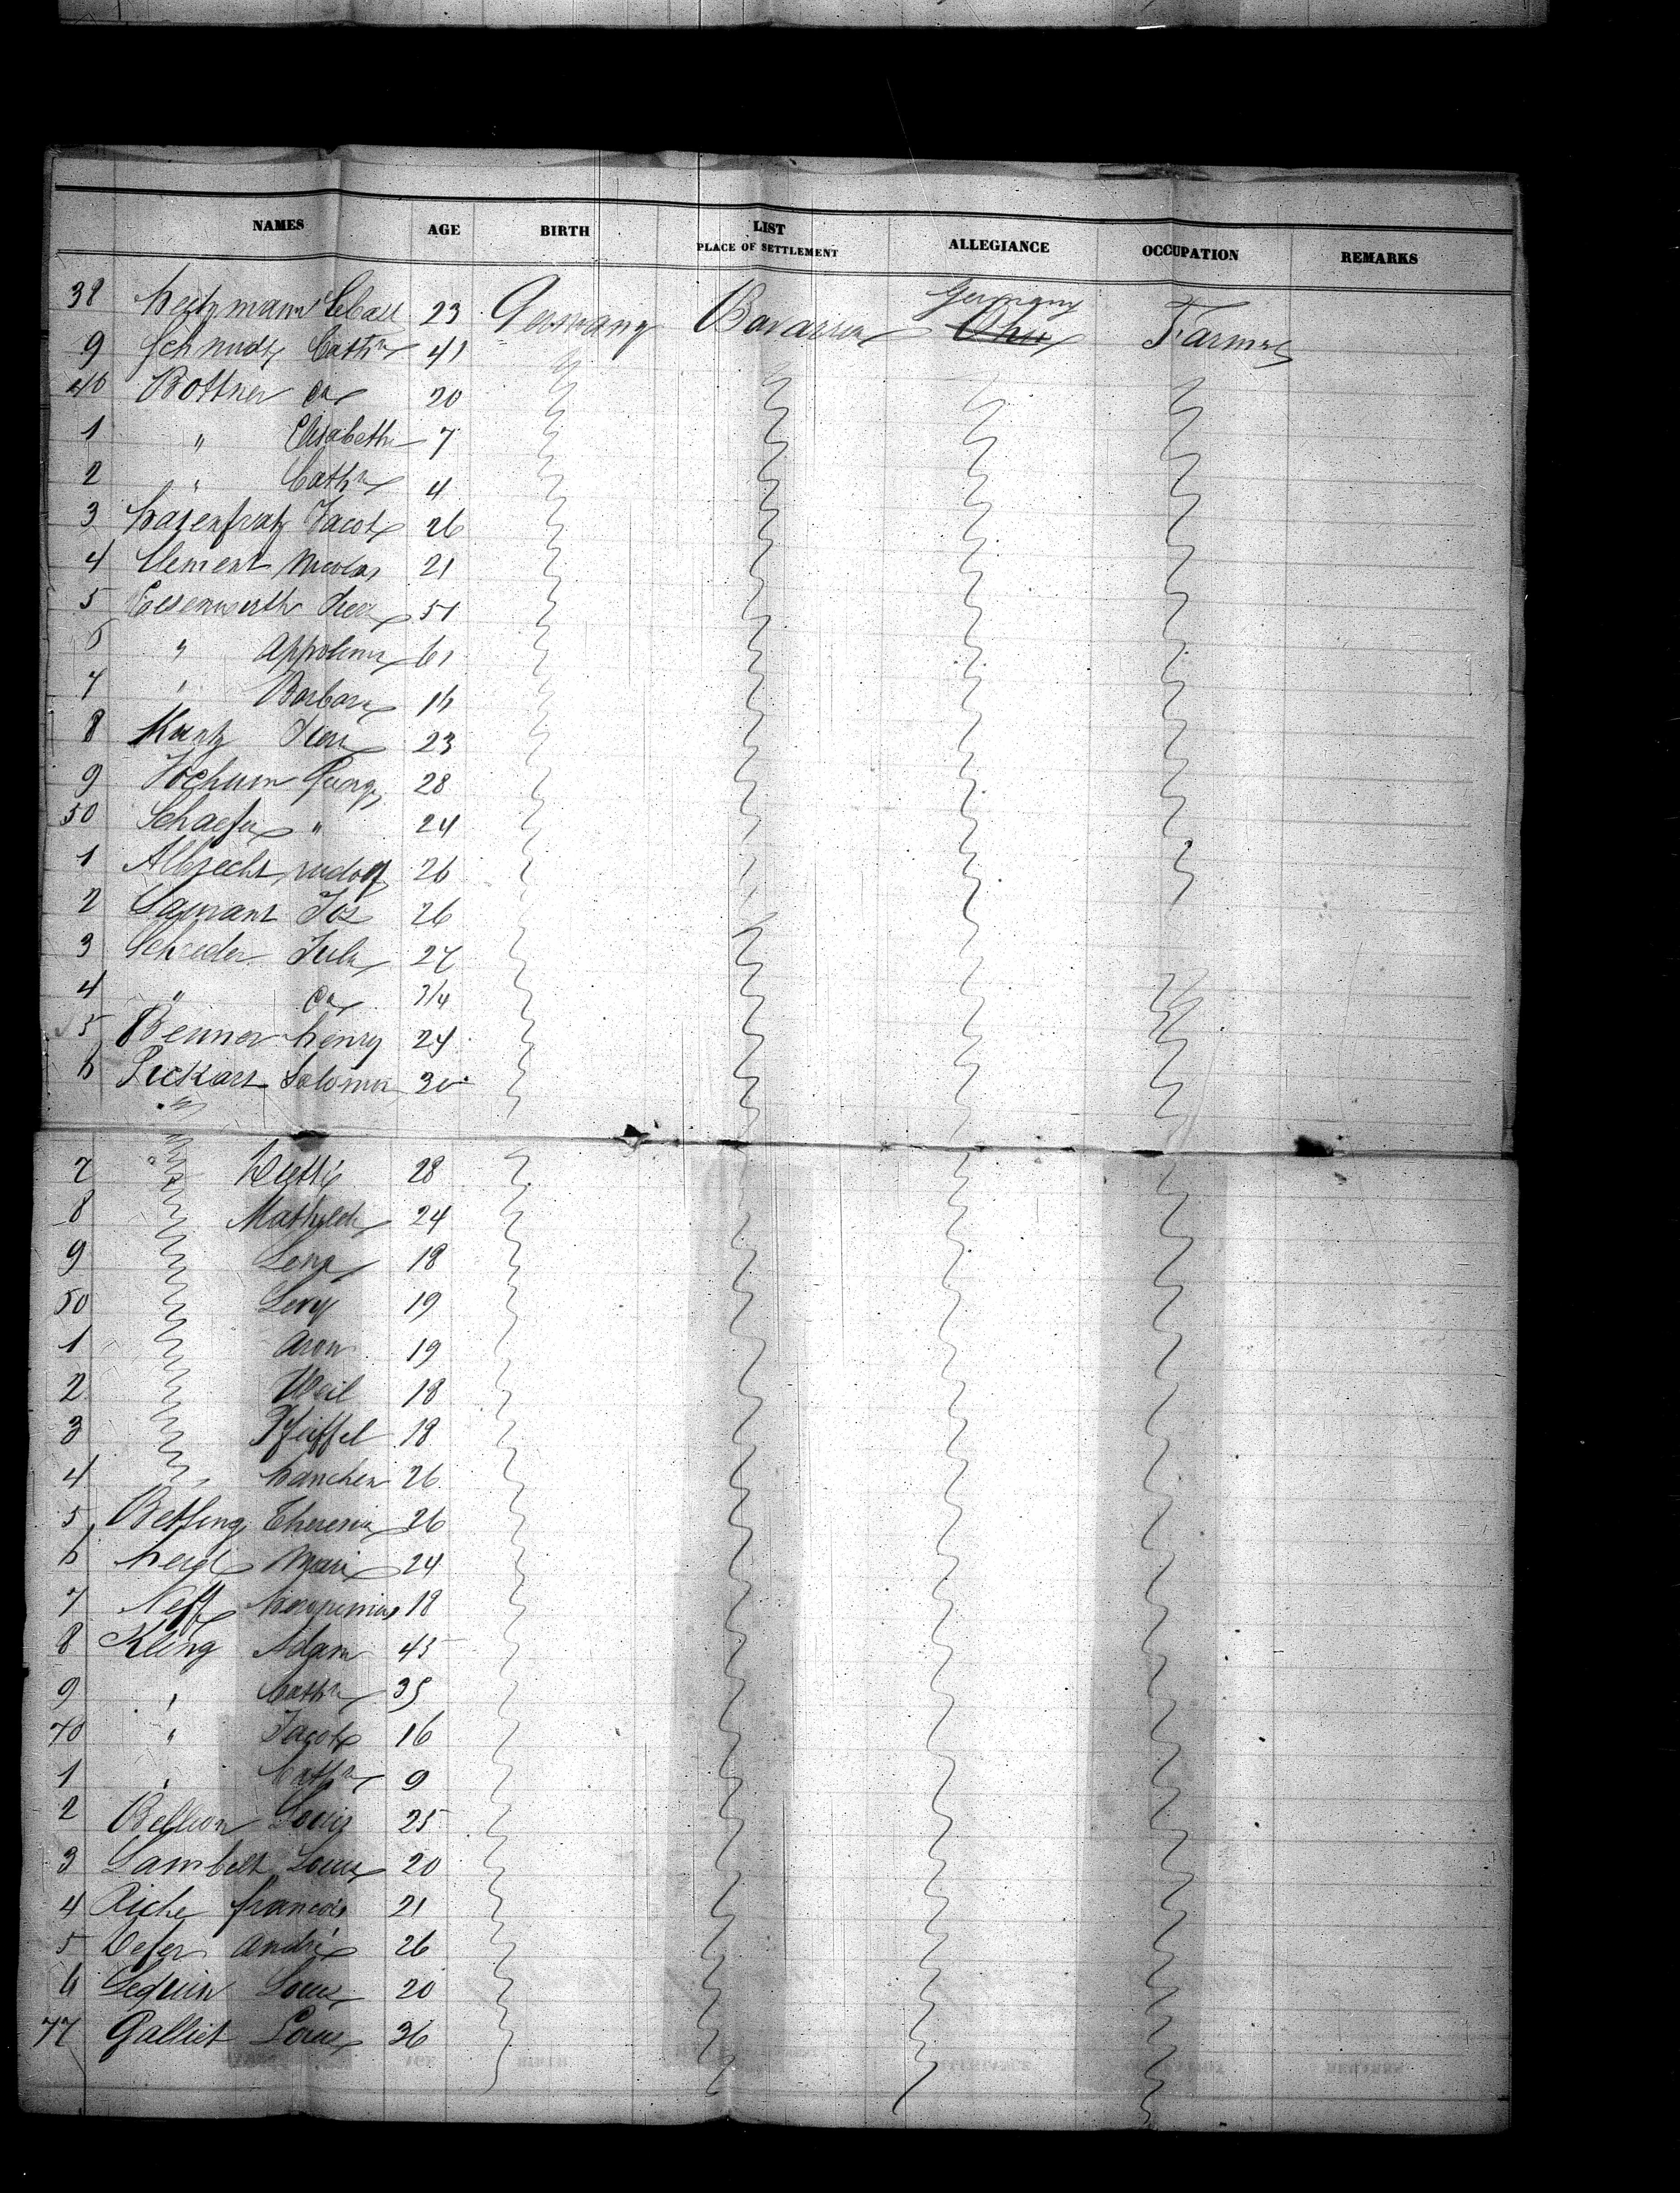 NAMES AGE BIRTH LIST PLACE OF SETTLEMENT ALLEGIANCE OCCUPATION REMARKS
38 Heitzmann 23 Germany Bavaria Germany Ohio Farmers
9 Schmidt Cathn 41
40 Bottner Ca 20
1 " Elisabeth 7
2 " Cathn 4
3 Hasenfratz Jacob 26
4 Clement Nicolas 21
5 Eisenwerth 51
6 " Appolonia 61
7 " Barbara 16
8 Kuntz 23
9 Jochum Georg 28
50 Schaefer " 24
1 Albrecht rudolf 26
2 Jos 26
3 Schreder Julie 27
4 " Ca 3/4
5 Benner henry 24
6 Salomon 30
7 28
8 Mathilde 24
9 Lena 18
50 Levy 19
1 Aron 19
2 Weil 18
3 Pfeiffel 18
4 hanchen 26
5 Betting Theresia 26
6 heid Marie 24
7 Neff 18
8 Kling Adam 45
9 " Cathn 35
70 " Jacob 16
1 " Cathn 9
2 Bellion Louis 25
3 Lambert Louis 20
4 Riche francois 21
5 Defer André 26
6 Lequin Louis 20
77 Galliet Louis 36